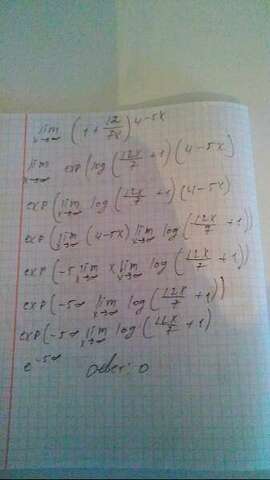 lim x→∞ (1 + 12/7x)^4-5x
lim x→∞ exp(log(12x/7 + 1)(4-5x)
exp(lim x→∞ log(12x/7 + 1)(4-5x)
exp(lim x→∞ (4-5x) lim x→∞ log(12x/7 + 1))
exp(-5 lim x→∞ x lim x→∞ log(12x/7 + 1))
exp(-5∞ lim x→∞ log(12x/7 + 1))
exp(-5∞ lim x→∞ log(12x/7 + 1)
e^-5∞ Ответ: 0